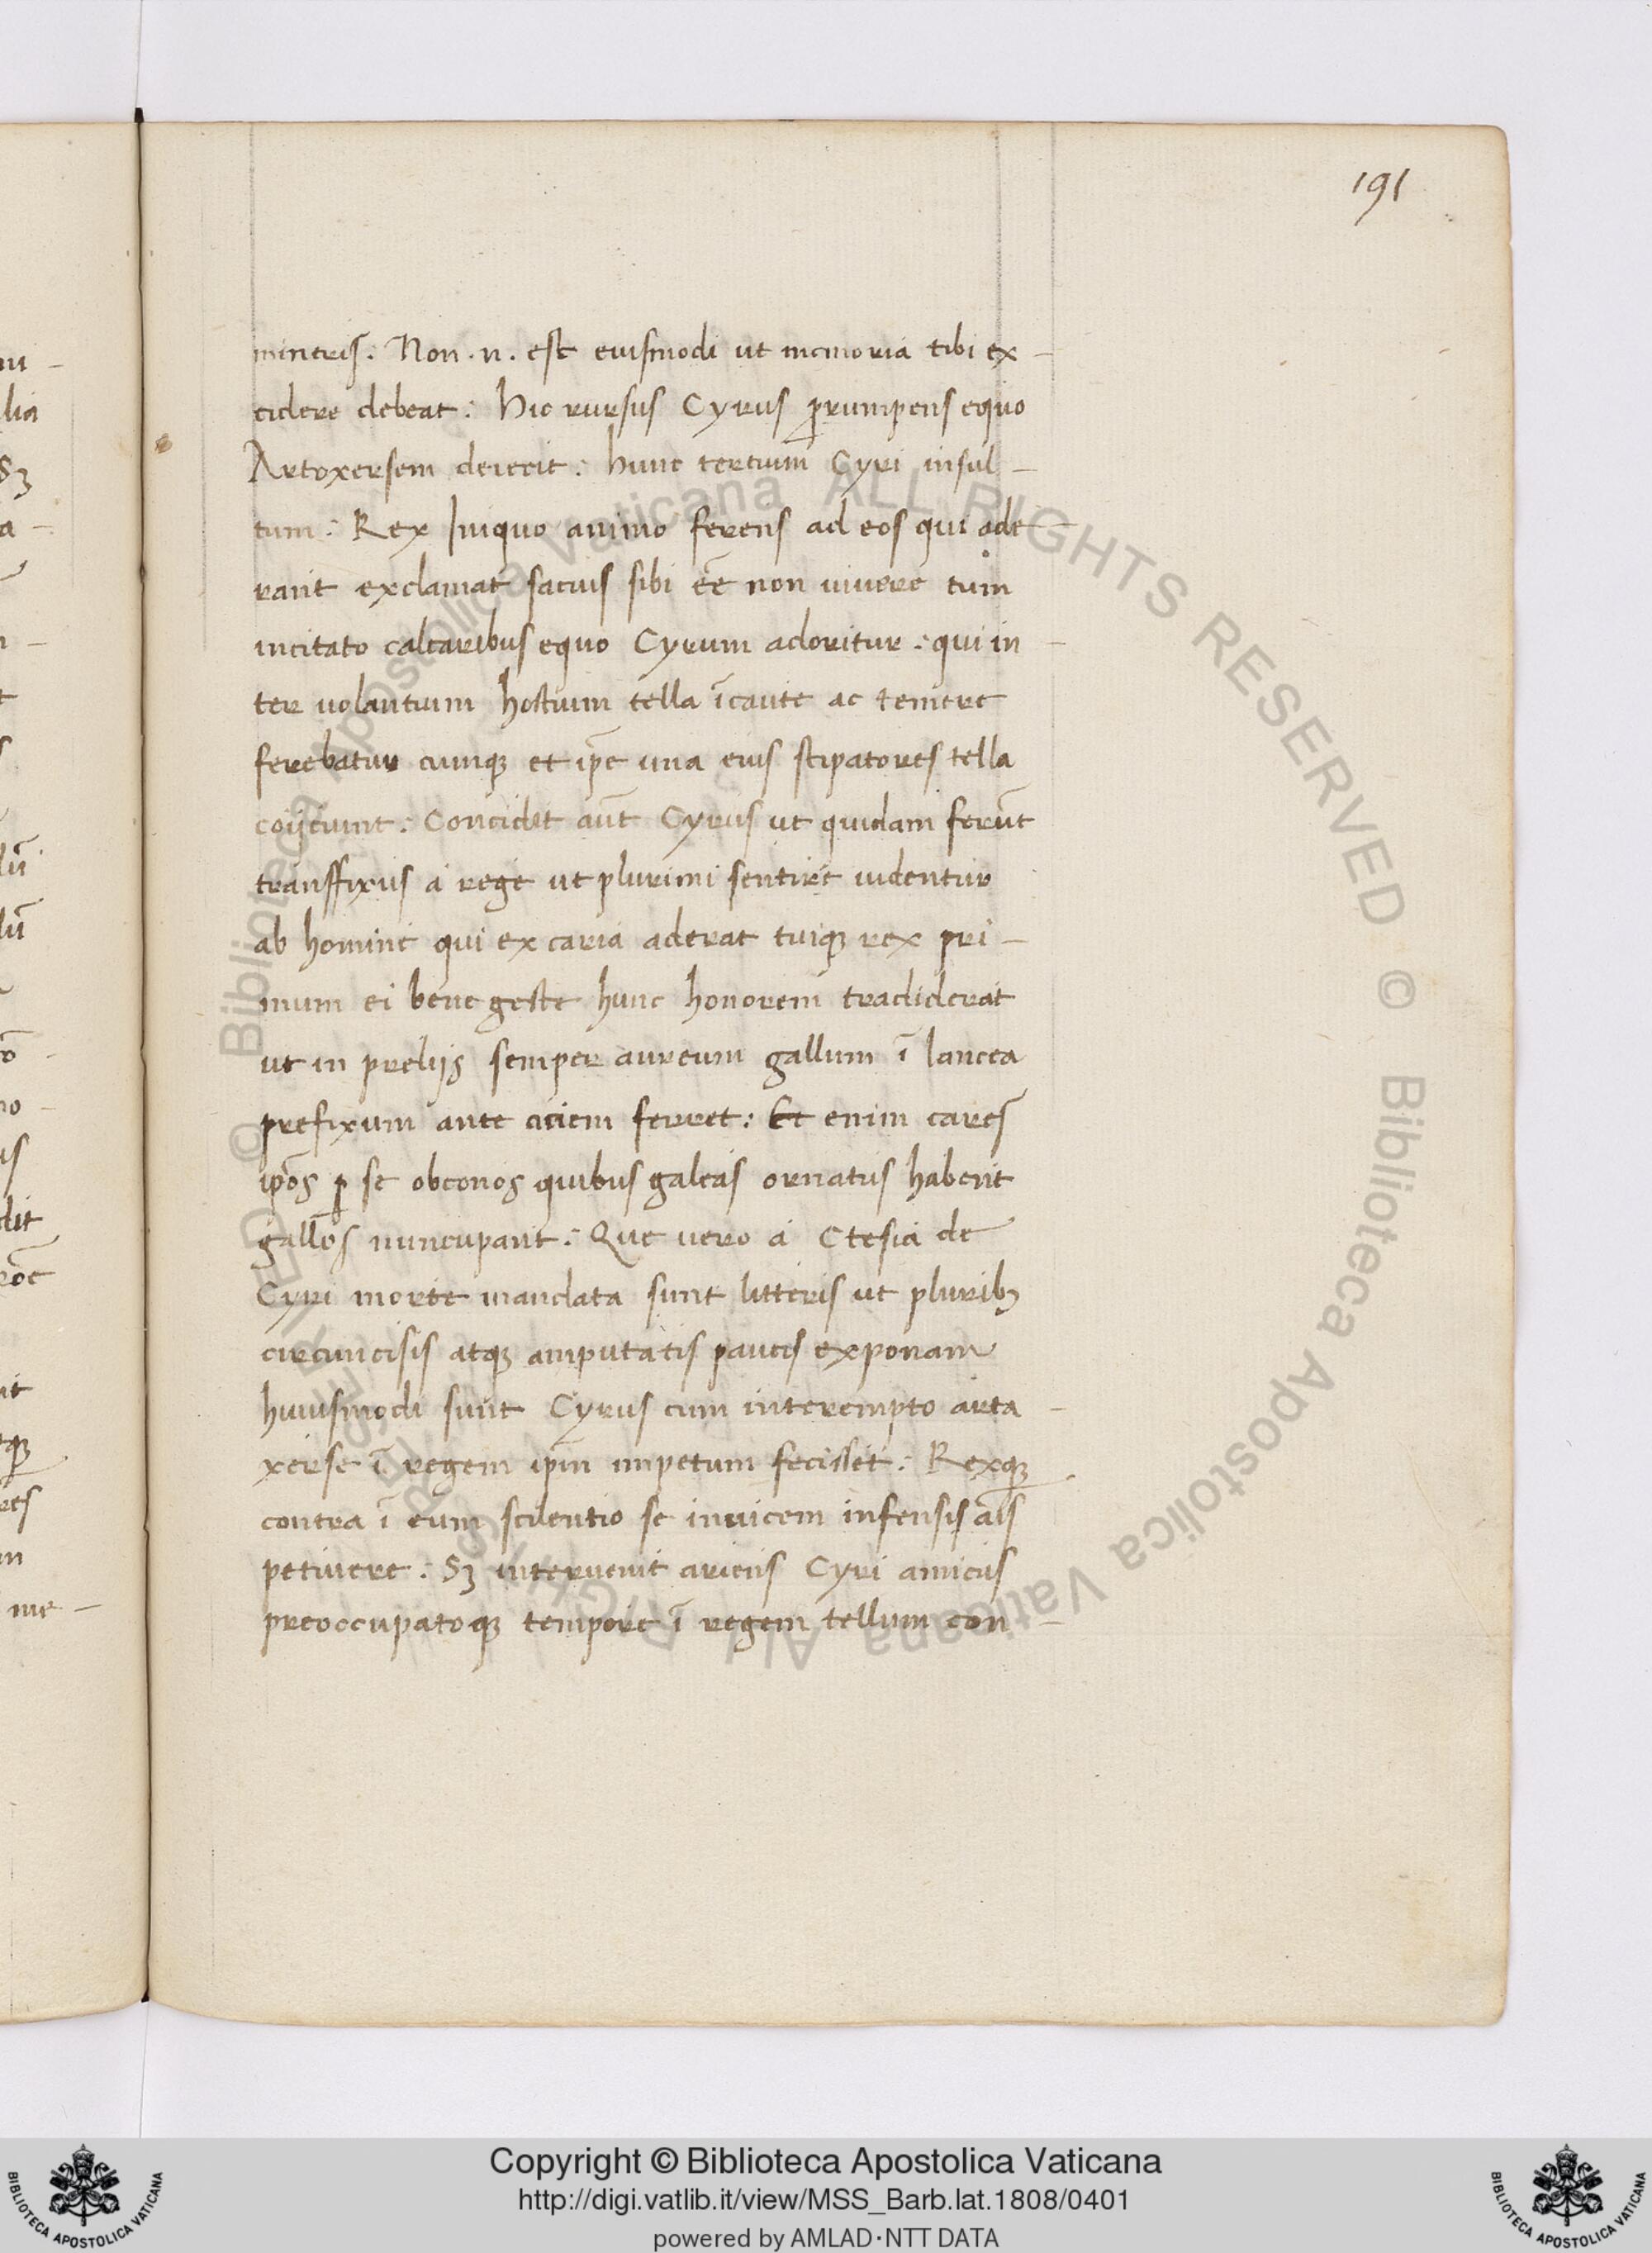 191
mineris. Non .n. est eiusmodi ut memoria tibi ex-
cidere debeat: Hic rursus Cyrus prumpens equo
Artoxersem deiecit: hunc tertium Cyri insul-
tum: Rex Iniquo animo ferens ad eos qui ade-
rant exclamat sacius sibi eē non uiuere tum
incitato calcaribus equo Cyrum adoritur: qui in-
ter uolantium hostium tella ĩcaute ac temere
ferebatur cumqꝫ et ip̄e una eius stipatores tella
coijciunt: Concidit aūt Cyrus ut quidam ferūt
transffixus a rege ut plurimi sentire uidentur
ab homine qui ex caria aderat cuiqꝫ rex pri-
mum ei bene geste hunc honorem tradiderat
ut in prelijs semper aureum gallum ĩ lancea
prefixum ante aciem ferret: Et enim cares
ip̄os ꝑ se obconos quibus galeas ornatus habent
gallos nuncupant: Que uero a Ctesia de
Cyri morte mandata sunt litteris ut pluribꝫ
circuncisis atqꝫ amputatis paucis exponam
huiusmodi sunt Cyrus cum interempto arta-
xerse ĩ regem ip̄m impetum fecisset: Rexqꝫ
contra ĩ eum scilentio se inuicem infensis aīs
petiuere: Sꝫ interuenit arieus Cyri amicus
preoccupatoqꝫ tempore ĩ regem tellum con-
Copyright © Biblioteca Apostolica Vaticana
http://digi.vatlib.it/view/MSS_Barb.lat.1808/0401
powered by AMLAD·NTT DATA